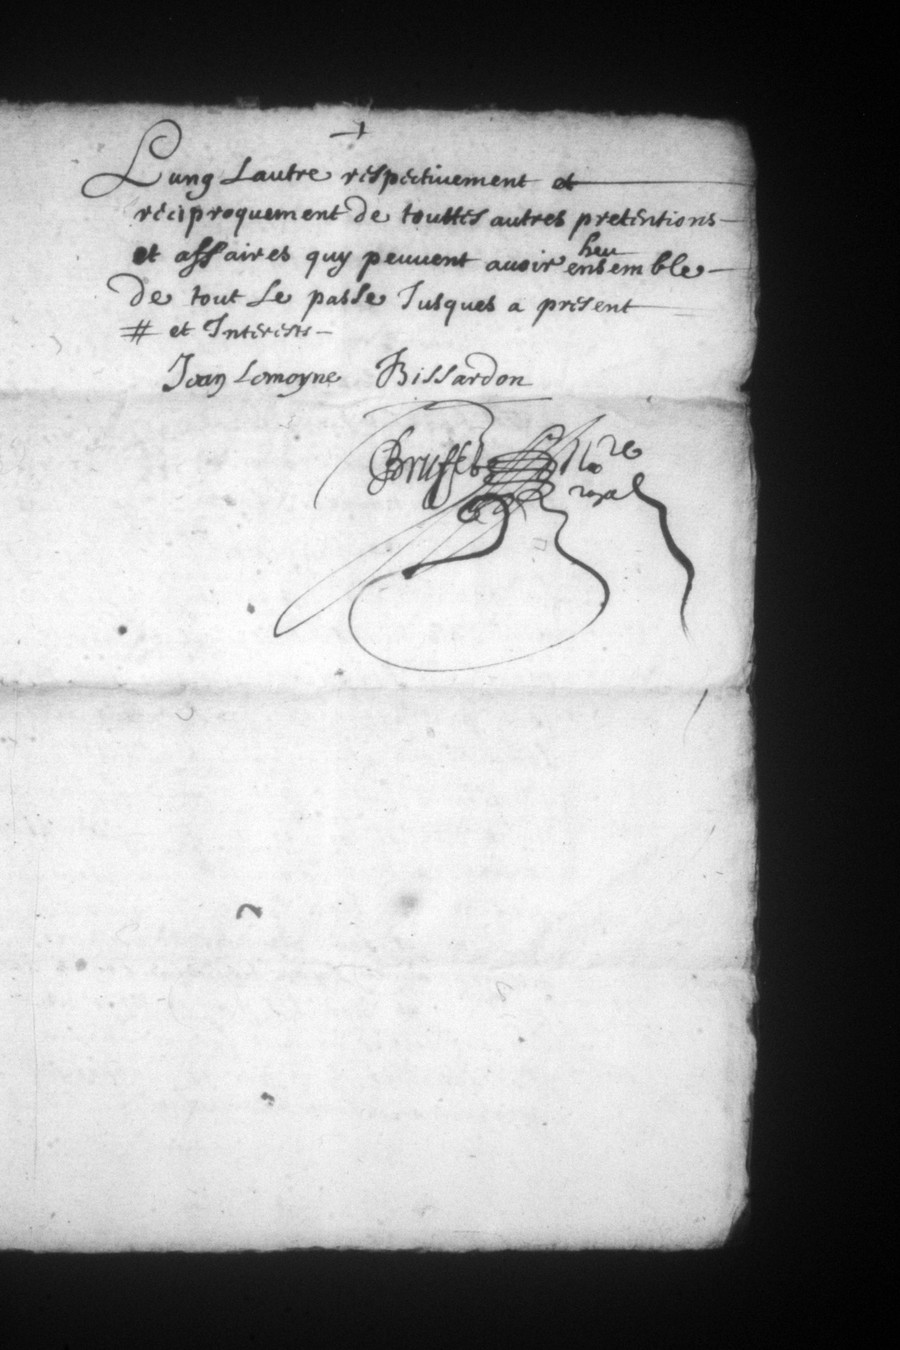 Lung Lautre respectivement et
reciproquement de touttes autres pretentions
et affaires quy peuvent avoir heu ensemble
de tout Le passe Jusques a present
# et Interests
Jean Lemoyne Bissardon
Brusset No re
royal